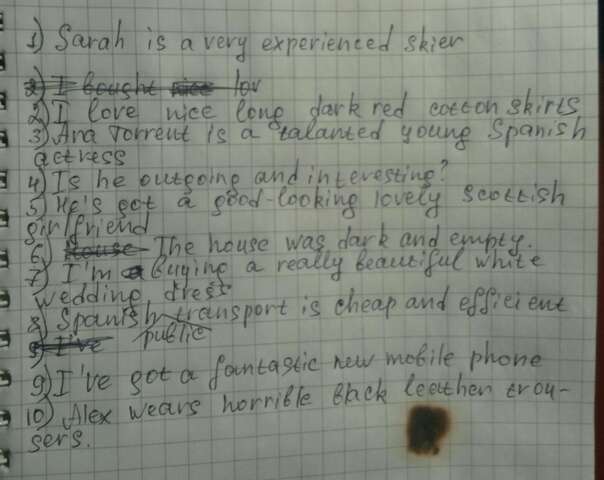 1) Sarah is a very experienced skier
2) I bought nice lov
2) I love nice long dark red cotton skirts
3) Ana Torrent is a talanted young Spanish
actress
4) Is he outgoing and interesting?
5) He's got a good-looking lovely scottish
girlfriend
6) House The house was dark and empty.
7) I'm a buying a really beautiful white
wedding dress
8) Spanish transport is cheap and efficient
9) I've public
9) I've got a fantastic new mobile phone
10) Alex wears horrible black leather trou-
sers.